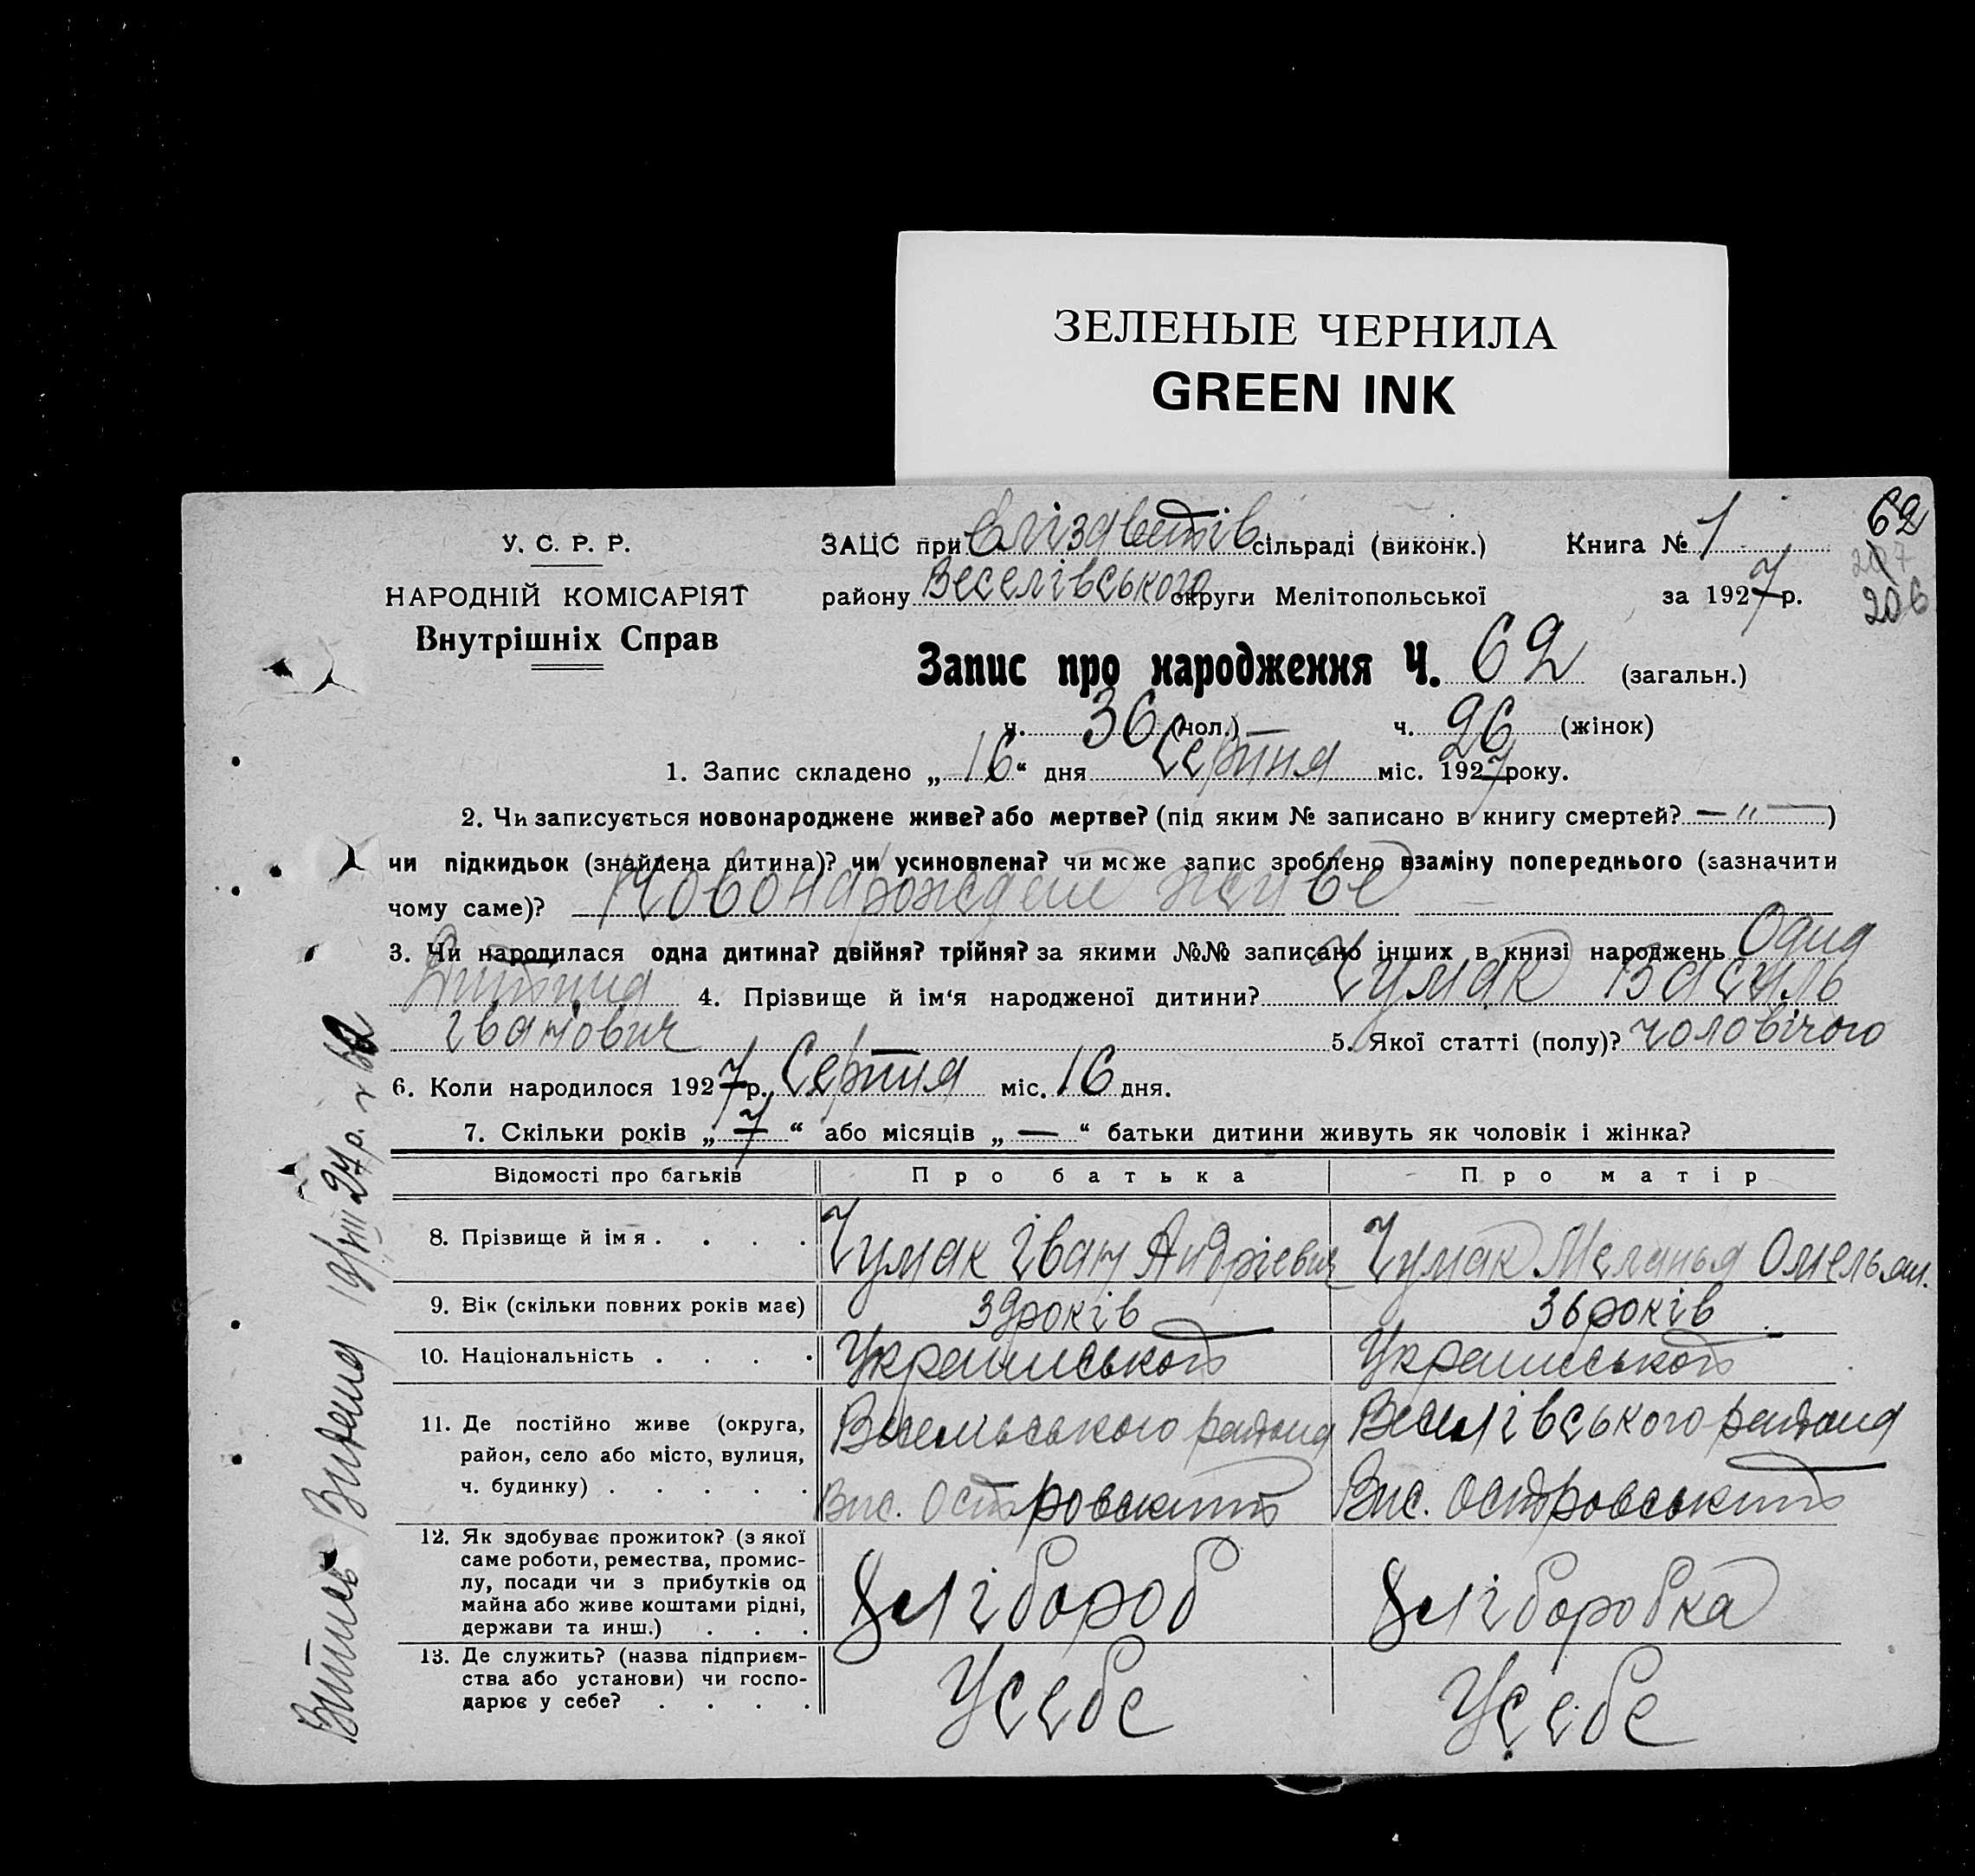 ЗЕЛЕНЫЕ ЧЕРНИЛА
GREEN INK
У. С. Р. Р.
НАРОДНІЙ КОМІСАРІЯТ
Внутрішніх Справ
ЗАЦС при Єлізаветів сільраді (виконк.) Книга № 1
62
207
206
району Веселівського округи Мелітопольської за 1927 р.
Запис про народження Ч. 62 (загальн.)
ч. 36 (чол.) — ч. 26 (жінок)
1. Запис складено „16“ дня Серпня міс. 1927 року.
2. Чи записується новонароджене живе? або мертве? (під яким № записано в книгу смертей? — " —)
чи підкидьок (знайдена дитина)? чи усиновлена? чи може запис зроблено взаміну попереднього (зазначити
чому саме)? Новонарождене живе
3. Чи народилася одна дитина? двійня? трійня? за якими №№ записано інших в книзі народжень Одна
Дитина 4. Прізвище й ім‘я народженої дитини? Чумак Василь
Іванович 5. Якої статті (полу)? чоловічого
6. Коли народилося 1927 р. Серпня міс. 16 дня.
7. Скільки років „7“ або місяців „—“ батьки дитини живуть як чоловік і жінка?
Відомості про батьків Про батька Про матір
8. Прізвище й імя . . . . Чумак Іван Андрієвич Чумак Меланья Омельян.
9. Вік (скільки повних років має) 39 років 36 років
10. Національність . . . . Украинського Украинського
11. Де постійно живе (округа,
район, село або місто, вулиця,
ч. будинку) . . . . .
Веселівського района Веселівського района
Вис. Островський Вис. Островський
12. Як здобуває прожиток? (з якої
саме роботи, ремества, промис-
лу, посади чи з прибутків од
майна або живе коштами рідні,
держави та инш.) . . .
Хлібороб Хліборобка
13. Де служить? (назва підприєм-
ства або установи) чи госпо-
дарює у себе? . . . .
У себе У себе
Витись Видана 19/VIII 27 р. 62